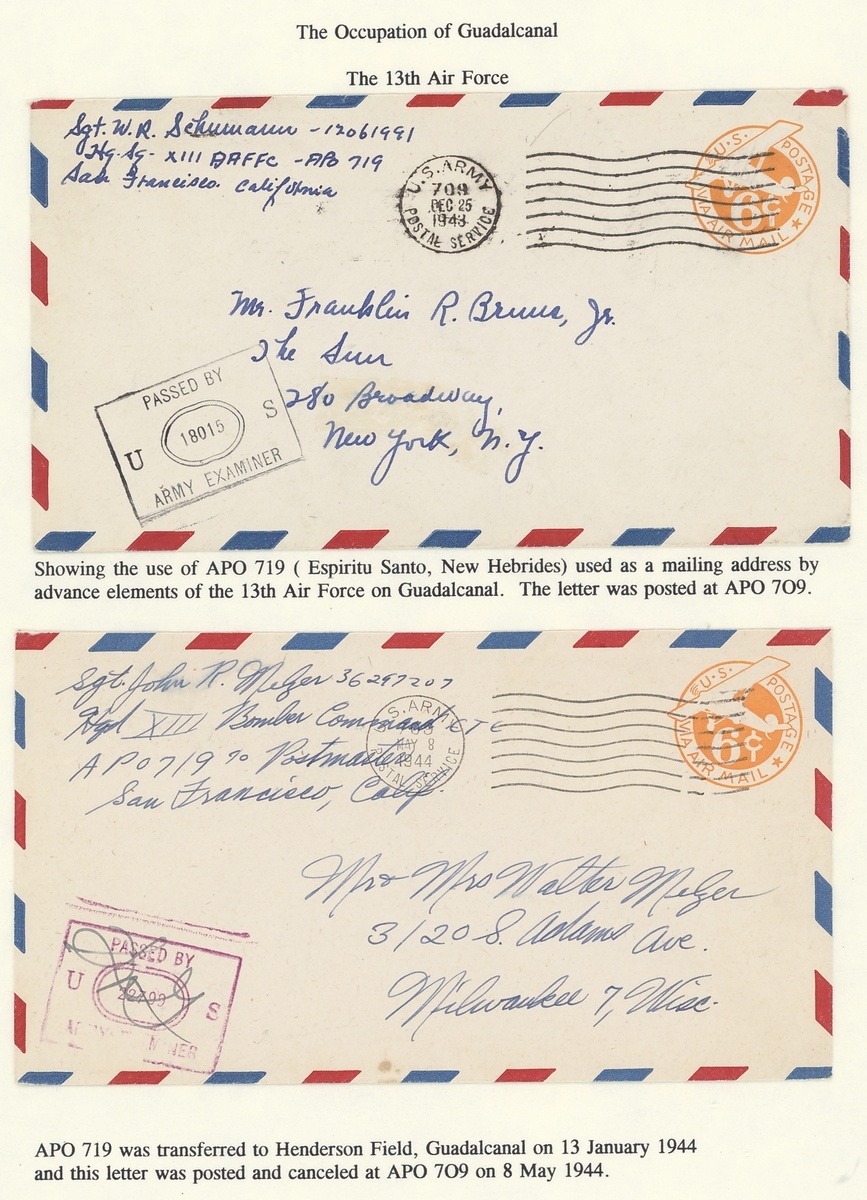 The Occupation of Guadalcanal
The 13th Air Force
Sgt. W. R. Schumann - 12061991
Hq. Sq. XIII AAFFC - APO 719
San Francisco. California
U.S. ARMY
709
DEC 25
1943
POSTAL SERVICE
U.S. POSTAGE
6¢
VIA AIR MAIL
Mr. Franklin R. Bruns, Jr.
The Sun
280 Broadway,
New York, N.Y.
PASSED BY
U 18015 S
ARMY EXAMINER
Showing the use of APO 719 ( Espiritu Santo, New Hebrides) used as a mailing address by
advance elements of the 13th Air Force on Guadalcanal. The letter was posted at APO 7O9.
Sgt. John R. Melzer 36297207
Hqd XIII Bomber Command
APO 719 % Postmaster
San Francisco, Calif
U.S. ARMY
MAY 8
1944
POSTAL SERVICE
U.S. POSTAGE
6¢
VIA AIR MAIL
Mr & Mrs Walter Melzer
3120 S. Adams Ave.
Milwaukee 7, Wisc.
PASSED BY
U S
APO 719 was transferred to Henderson Field, Guadalcanal on 13 January 1944
and this letter was posted and canceled at APO 7O9 on 8 May 1944.